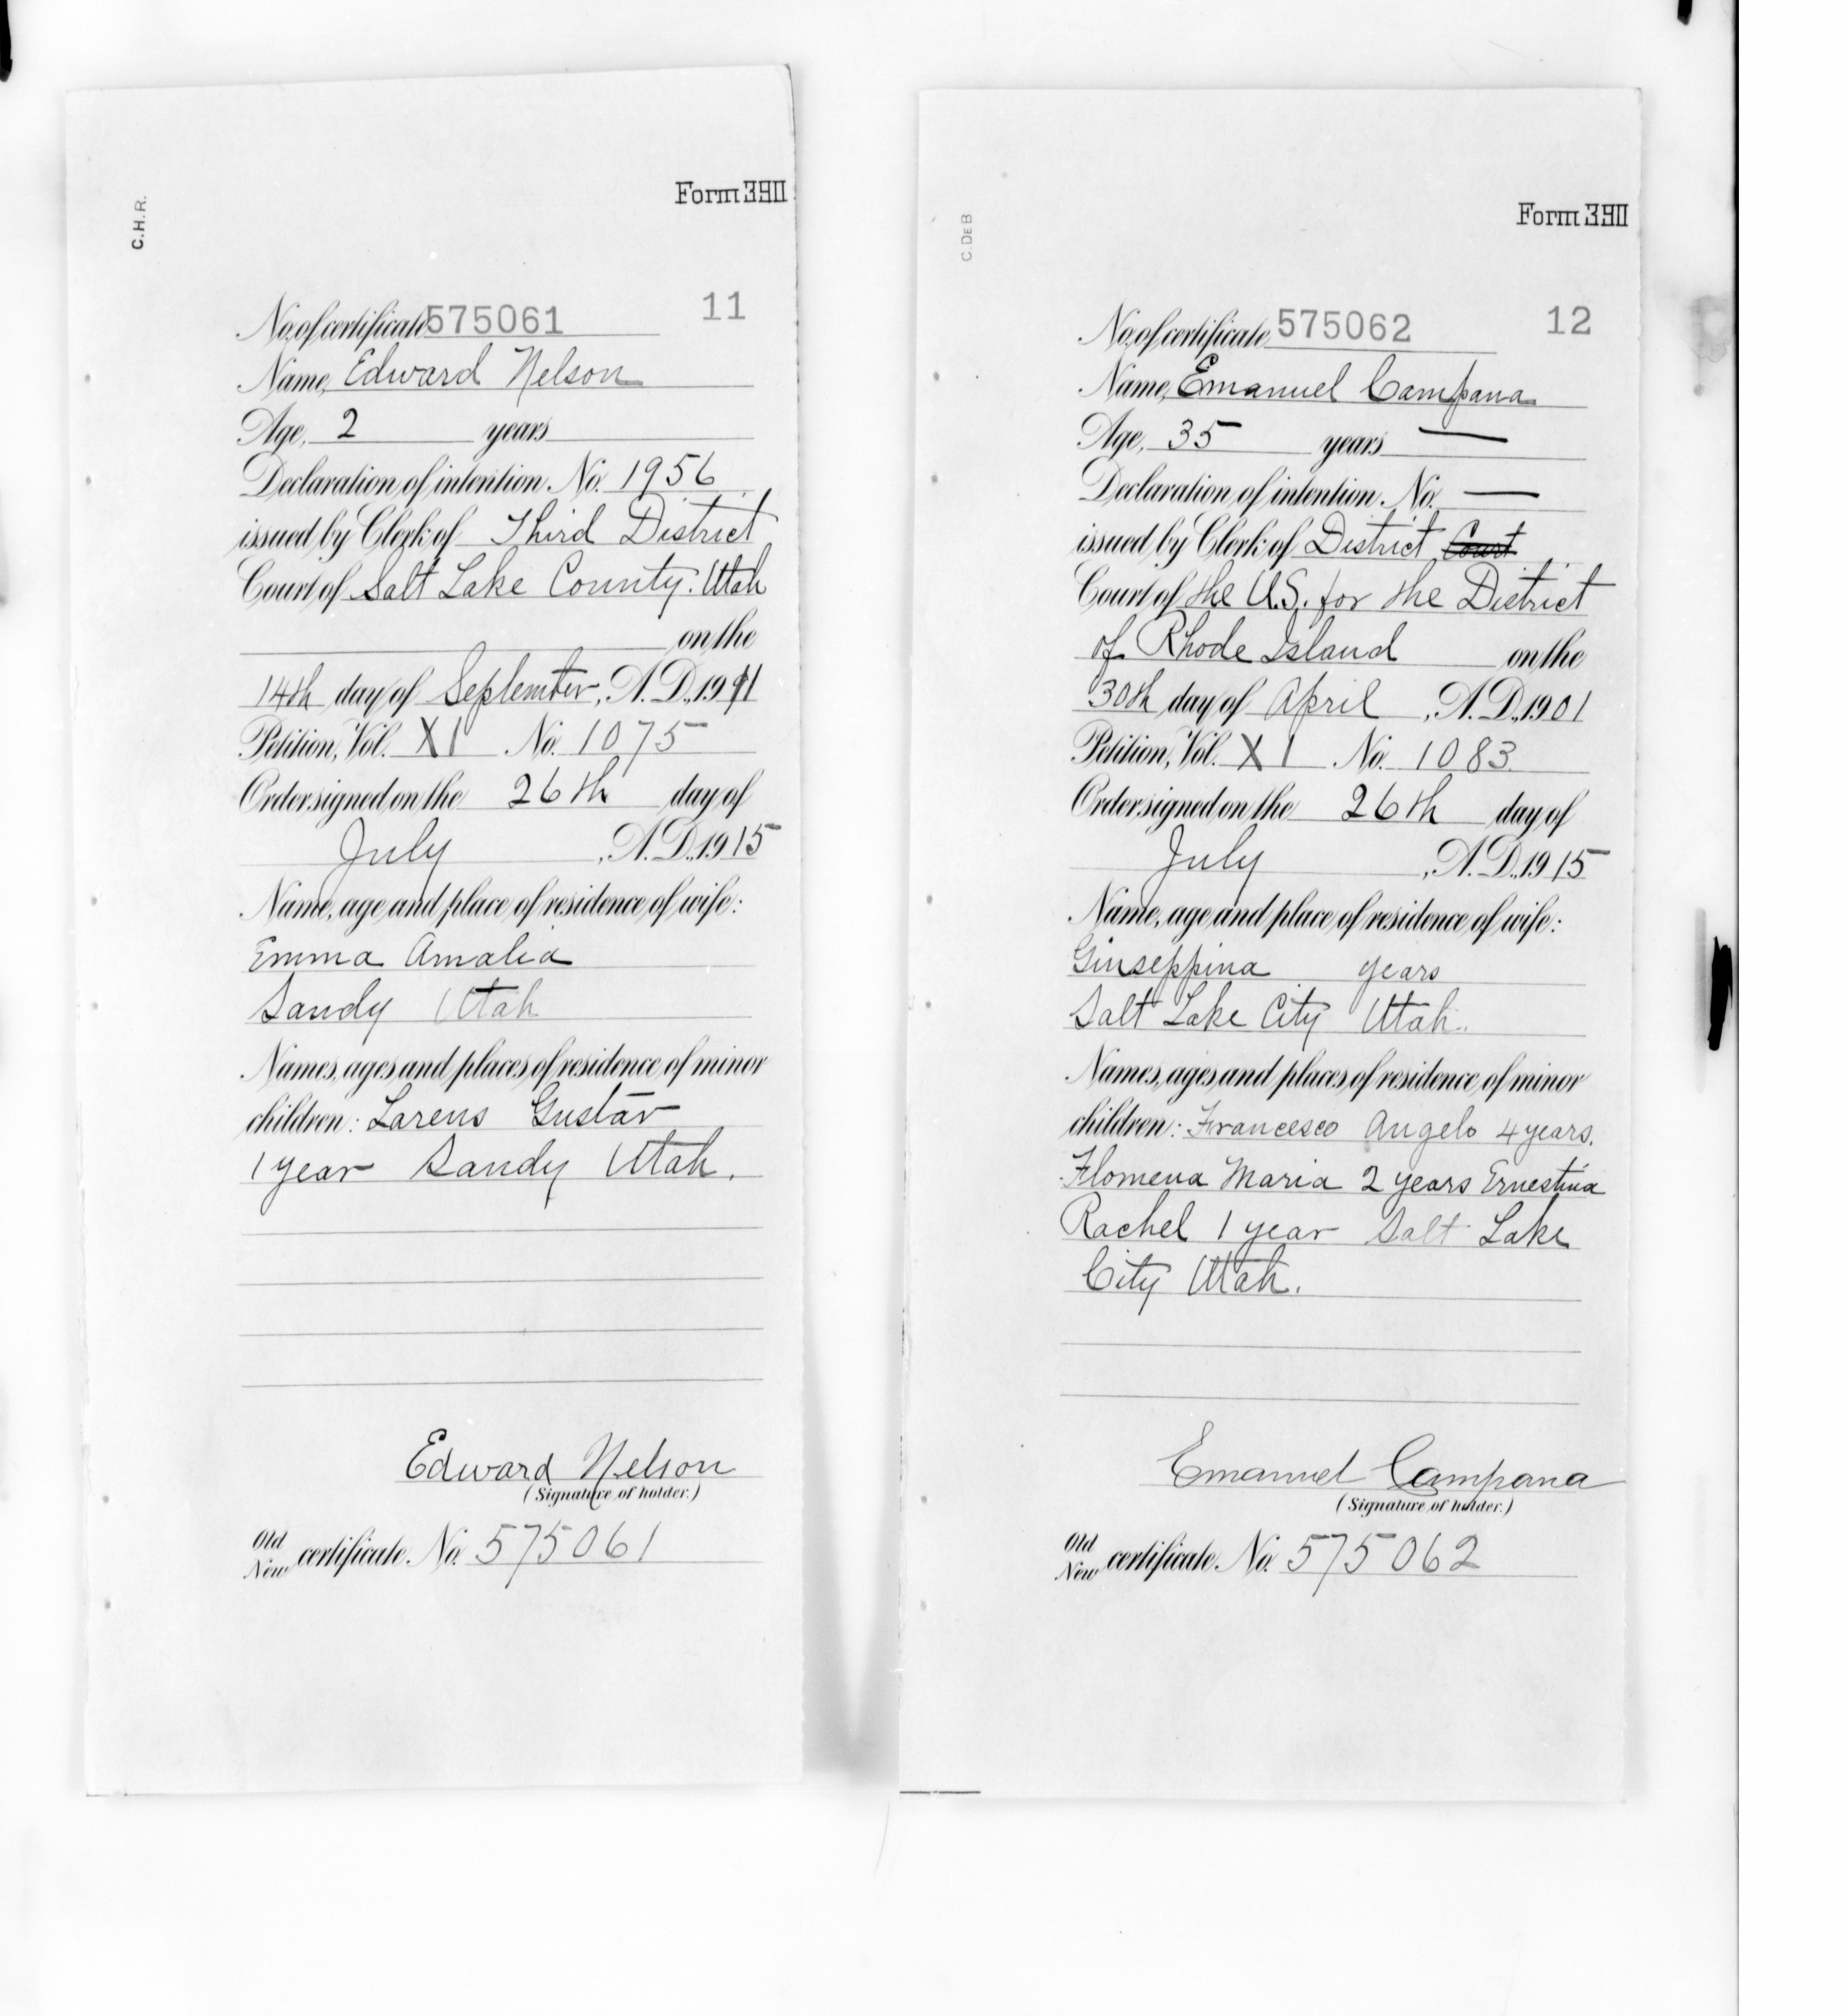 C.H.R.
Form 390
No. of certificate 575061 11
Name, Edward Nelson
Age, 2 years
Declaration of intention No. 1956
issued by Clerk of Third District
Court of Salt Lake County. Utah
on the
14th day of September, A. D., 1911
Petition, Vol. XI No. 1075
Order signed on the 26th day of
July, A. D., 1915
Name, age and place of residence of wife:
Emma Amalia
Sandy Utah
Names, ages and places of residence of minor
children: Larens Gustav
1 year Sandy Utah.
Edward Nelson
(Signature of holder.)
Old
New certificate No. 575061
C. DEB
Form 390
No. of certificate 575062 12
Name, Emanuel Campana
Age, 35 years —
Declaration of intention No. —
issued by Clerk of District Court
Court of the U.S. for the District
of Rhode Island on the
30th day of April, A. D., 1901
Petition, Vol. XI No. 1083
Order signed on the 26th day of
July, A. D., 1915
Name, age and place of residence of wife:
Giuseppina years
Salt Lake City Utah.
Names, ages and places of residence of minor
children: Francesco Angelo 4 years.
Flomena Maria 2 years Ernestina
Rachel 1 year Salt Lake
City Utah.
Emanuel Campana
(Signature of holder.)
Old
New certificate No. 575062